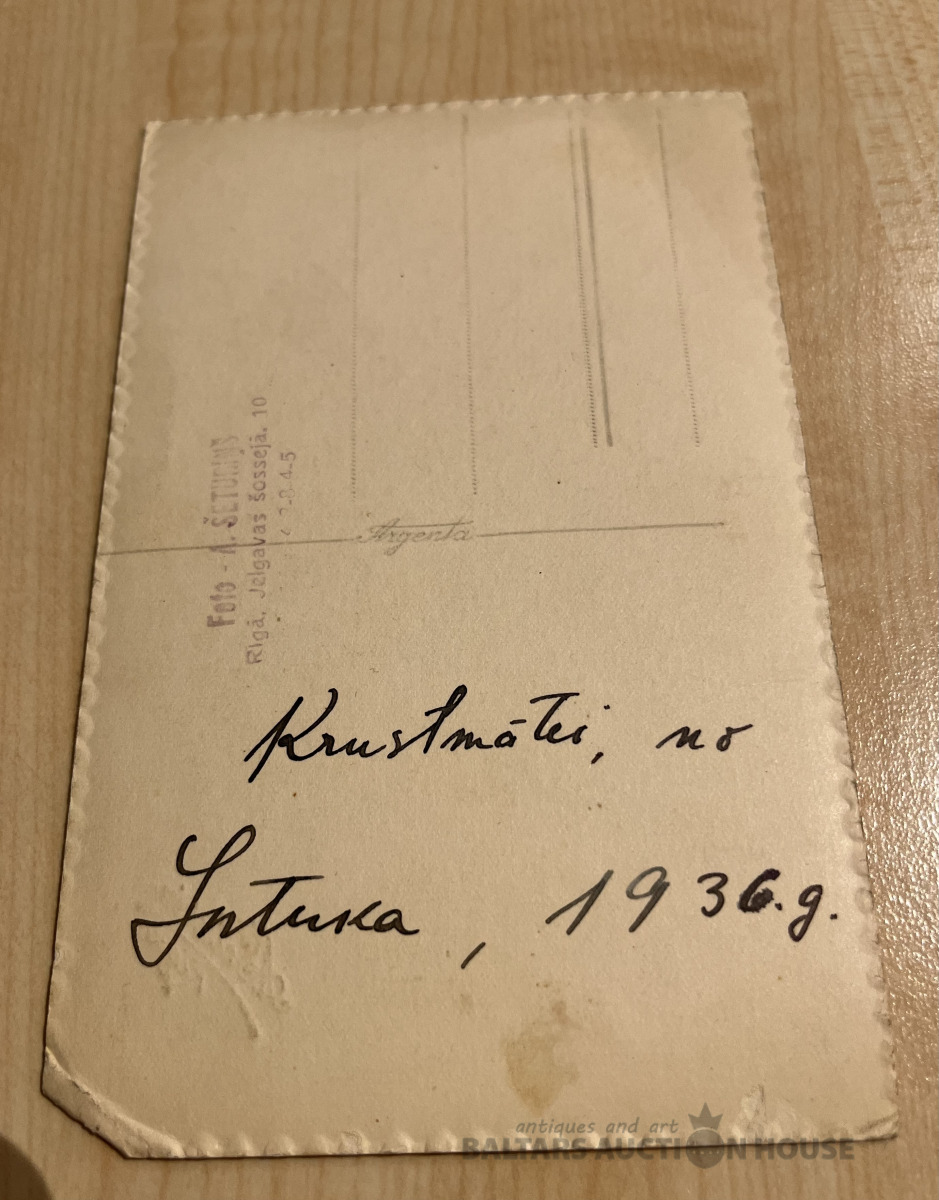 Foto - A. ŠETURIŅŠ
Rīgā, Jelgavas šosejā. 10
Argenta
Krustmātei, no
Intuka, 1936.g.
antiques and art
BALTARS AUCTION HOUSE